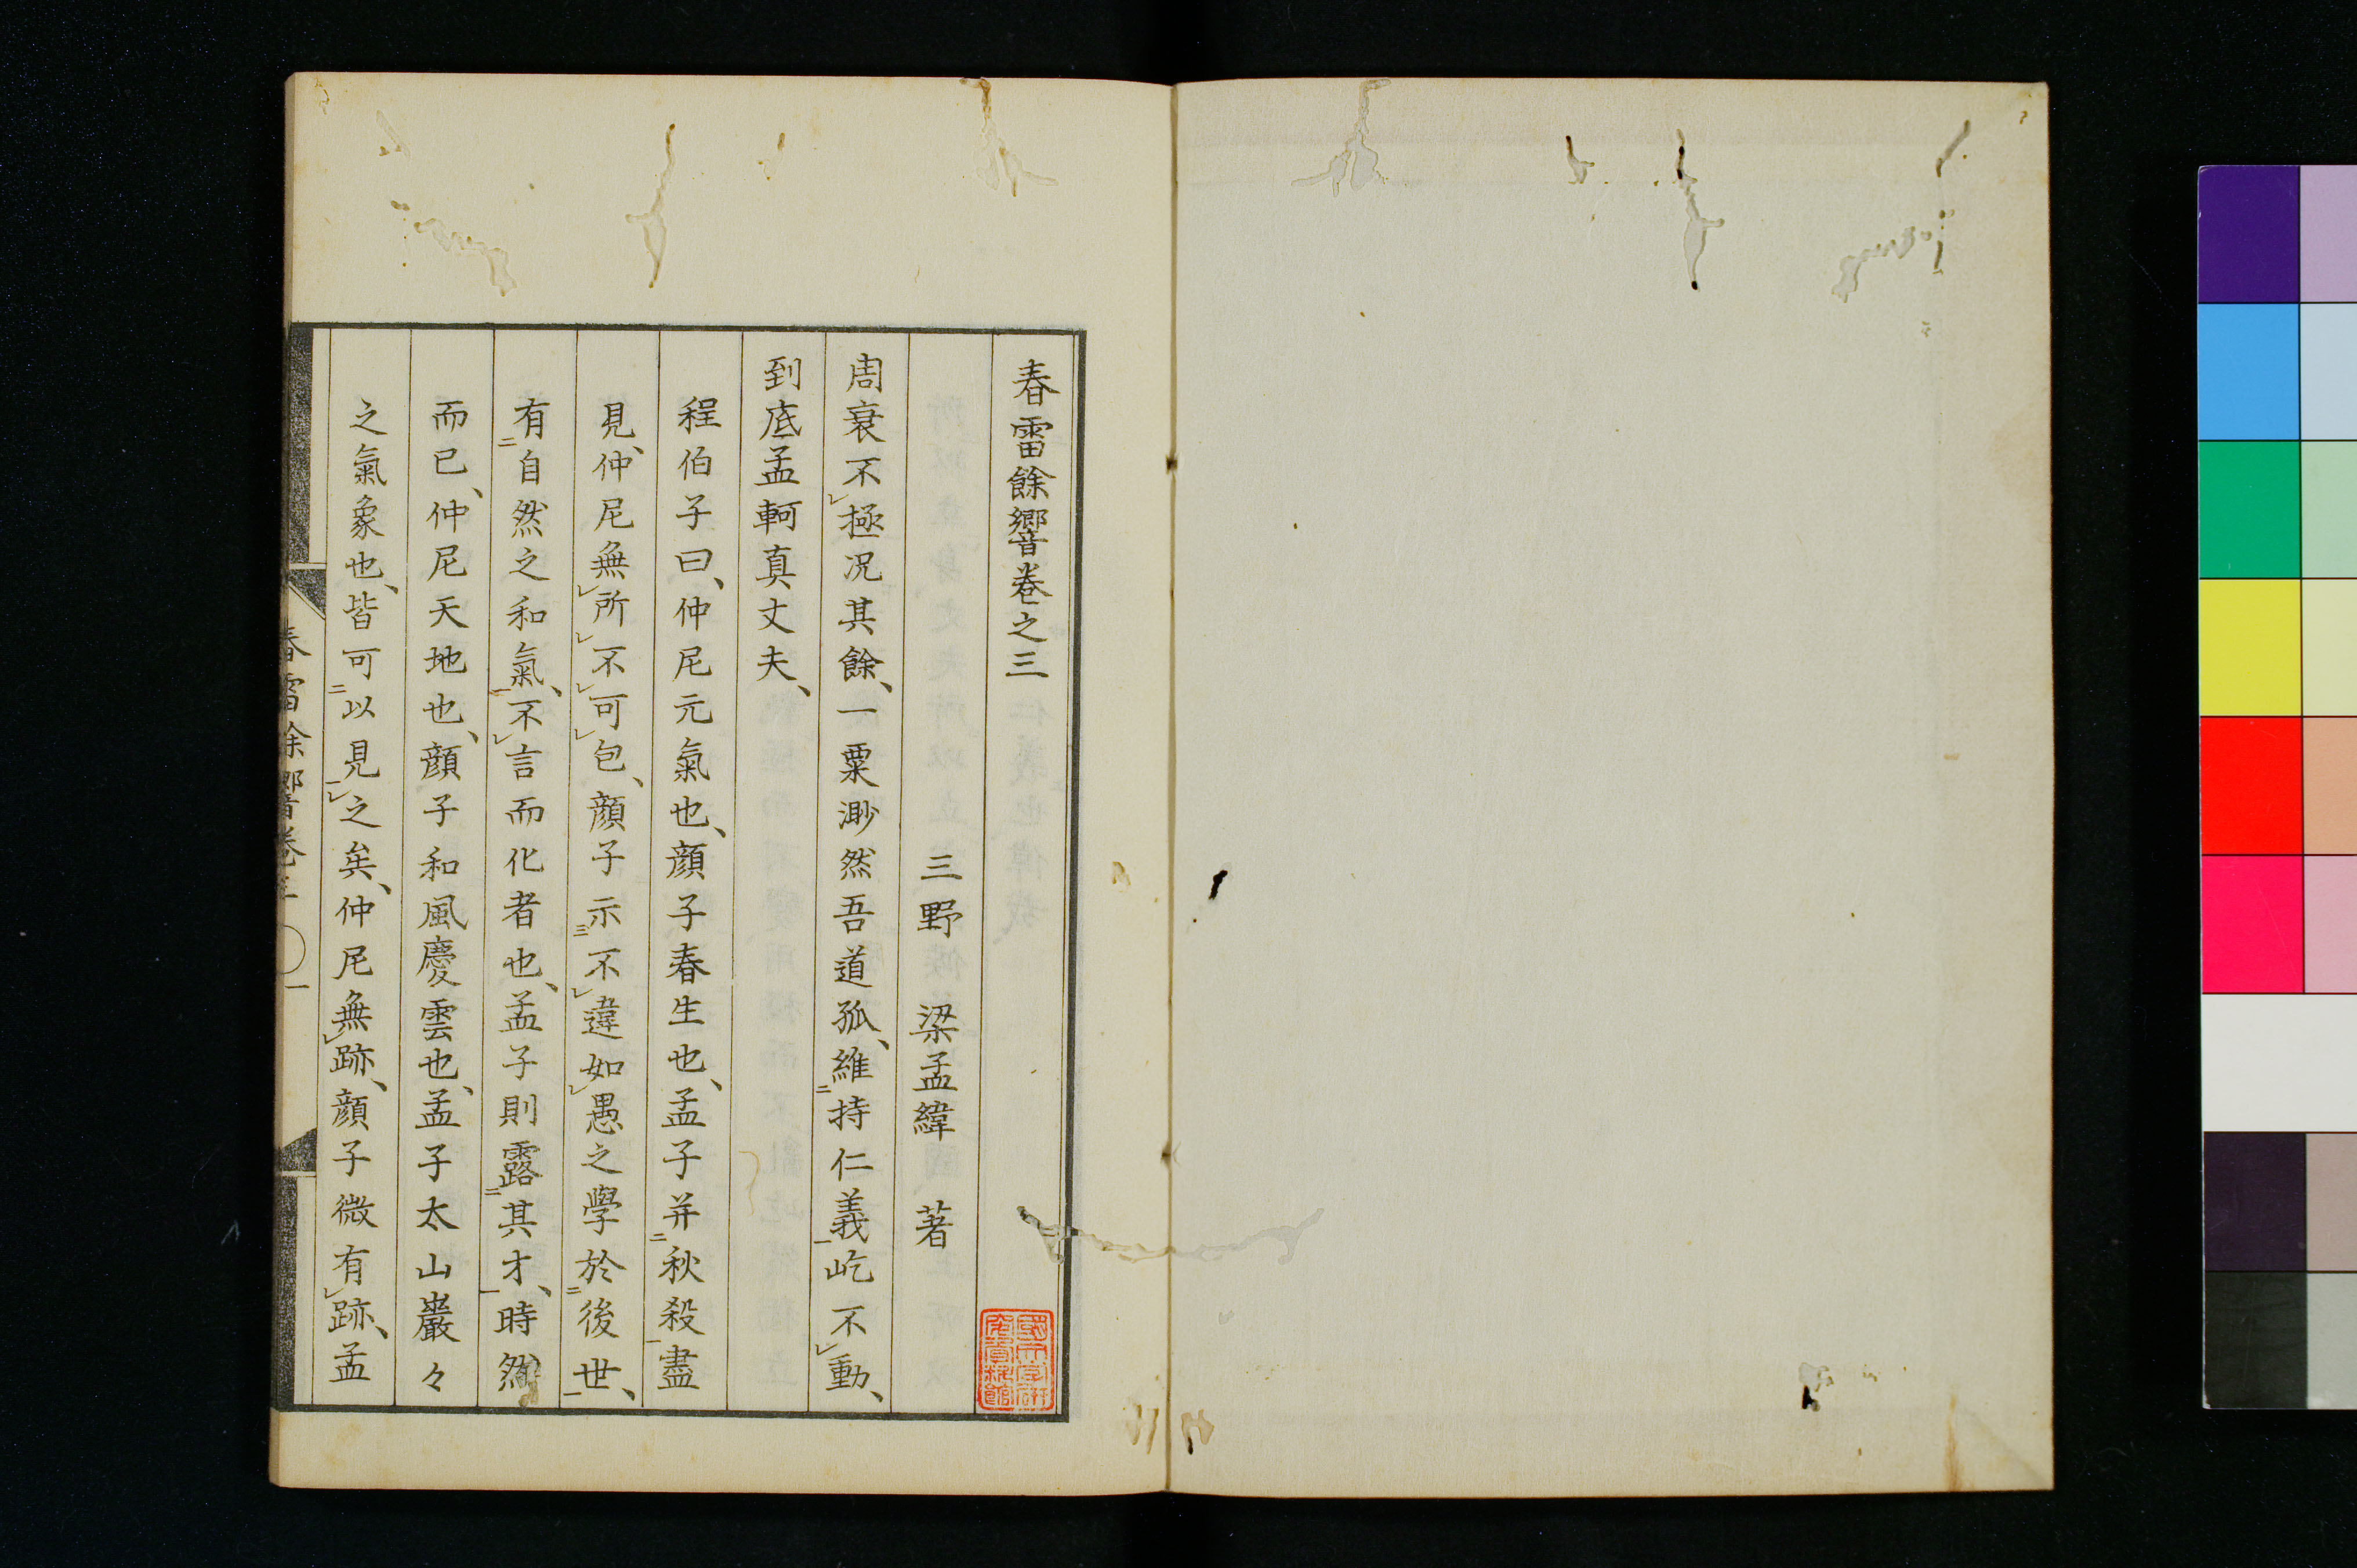 春雷餘響卷之三
三野 梁孟緯 著
周衰不㆑極况其餘、一粟渺然吾道孤、維㆓持仁義㆒屹不㆑動、
到底孟軻真丈夫、
程伯子曰、仲尼元氣也、顔子春生也、孟子并㆓秋殺㆒盡
見、仲尼無㆑所㆑不㆑可㆑包、顔子示㆔不㆑違如㆑愚之學於㆓後世㆒、
有㆓自然之和氣㆒、不㆑言而化者也、孟子則露㆓其才㆒、時然
而已、仲尼天地也、顔子和風慶雲也、孟子太山巖々
之氣象也、皆可㆓以見㆒㆑之矣、仲尼無㆑跡、顔子微有㆑跡、孟
春雷餘響卷三 一